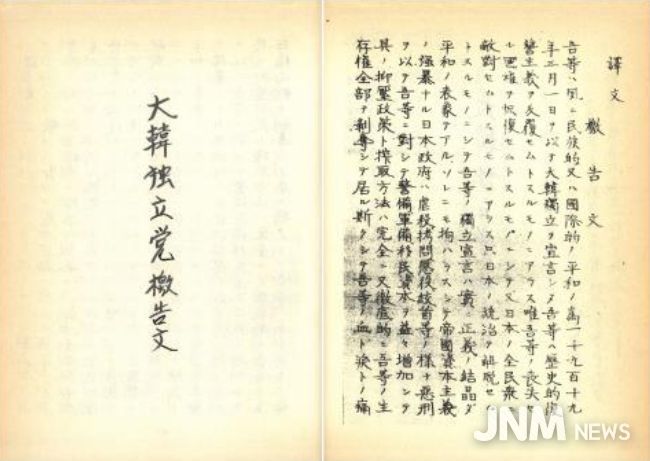 大韓独立党檄告文
譯文
檄告文
吾等ハ夙ニ民族的又ハ國際的ノ平和ノ為一千九百十九
年三月一日ヲ以テ大韓獨立ヲ宣言シタ吾等ハ歴史的復
讐主義ヲ反復セムトスルモノニアラス唯吾等ノ喪失セ
ヲ恢復セムトスルモノニシテ又日本ノ全民衆ニ
敵對セムトスルモノニアラス只日本ノ統治ヲ離脱セム
トスルモノニシテ吾等ノ獨立宣言ハ實ニ正義ノ結晶ダ
平和ノ表象テアルソレニモ拘ハラスシテ帝國資本主義
ノ強暴ナル日本政府ハ虐殺拷問懲役絞首等ノ様ナ惡刑
ヲ以テ吾等ニ對シテ警備軍備移民資本ヲ益々増加シテ
其ノ抑壓政策ト搾取方法ハ完全ニ又徹底的ニ吾等ノ生
存権全部ヲ剥奪シテ居ル斯クシテ吾等ノ血ト涙トノ痛
JNM NEWS